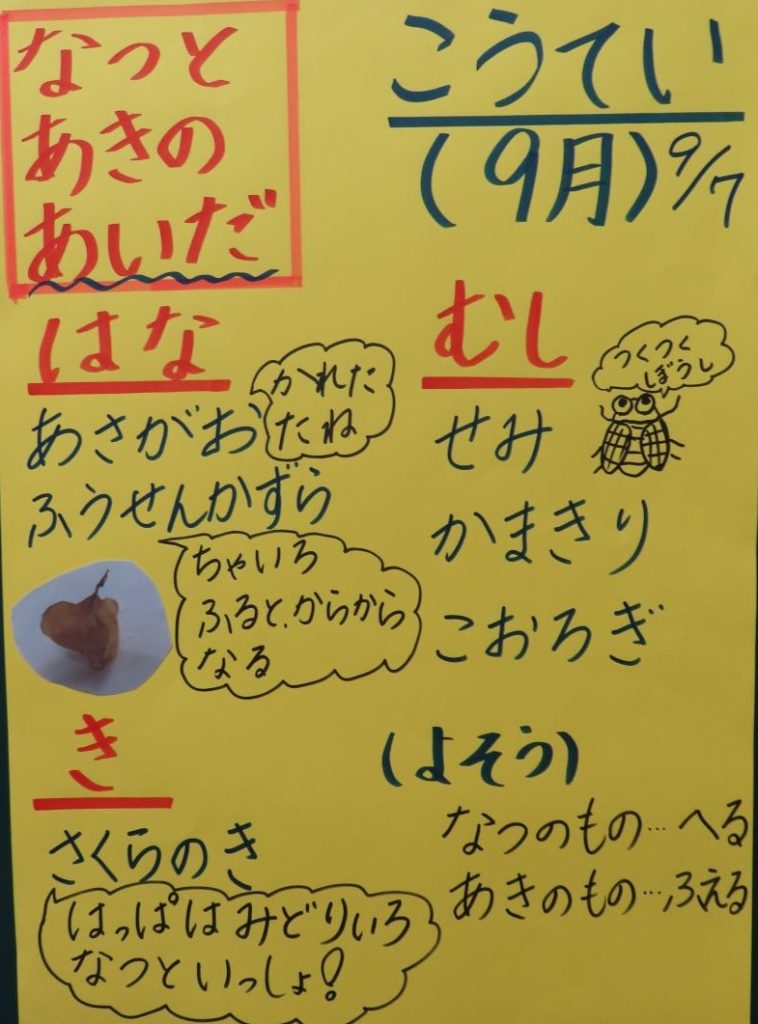 なつと
あきの
あいだ
こうてい
(9月) 9/7
はな
あさがお
かれた
たね
ふうせんかずら
ちゃいろ
ふると、からから
なる
むし
せみ
つくつく
ぼうし
かまきり
こおろぎ
き
さくらのき
はっぱはみどりいろ
なつといっしょ!
(よそう)
なつのもの…へる
あきのもの…ふえる